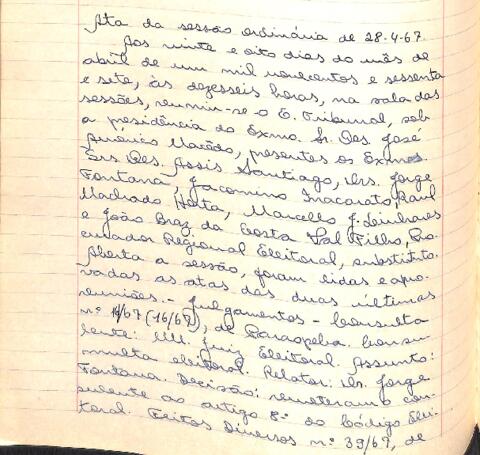 Ata da sessão ordinária de 28-4-67.
Aos vinte e oito dias do mês de
abril de um mil novecentos e sessenta
e sete, às dezesseis horas, na sala das
sessões, reuniu-se o E. Tribunal, sob
a presidência do Exmo. Sr. Des. José
Américo Macêdo, presentes os Exmos.
Srs. Des. Assis Santiago, Drs. Jorge
Fontana, Jacomino Inacarato, Raul
Machado Horta, Marcello J. Linhares
e João Braz da Costa Val Filho, Pro-
curador Regional Eleitoral, substituto.
Aberta a sessão, foram lidas e apro-
vadas as atas das duas últimas
reuniões. - Julgamentos - Consulta
nº 16/67 (16/67), de Paraopeba. Consu-
lente: MM. Juiz Eleitoral. Assunto:
multa eleitoral. Relator: Dr. Jorge
Fontana. Decisão: remeteram o con-
sulente ao artigo 8º do Código Elei-
toral. Feitos Diversos nº 39/67, de